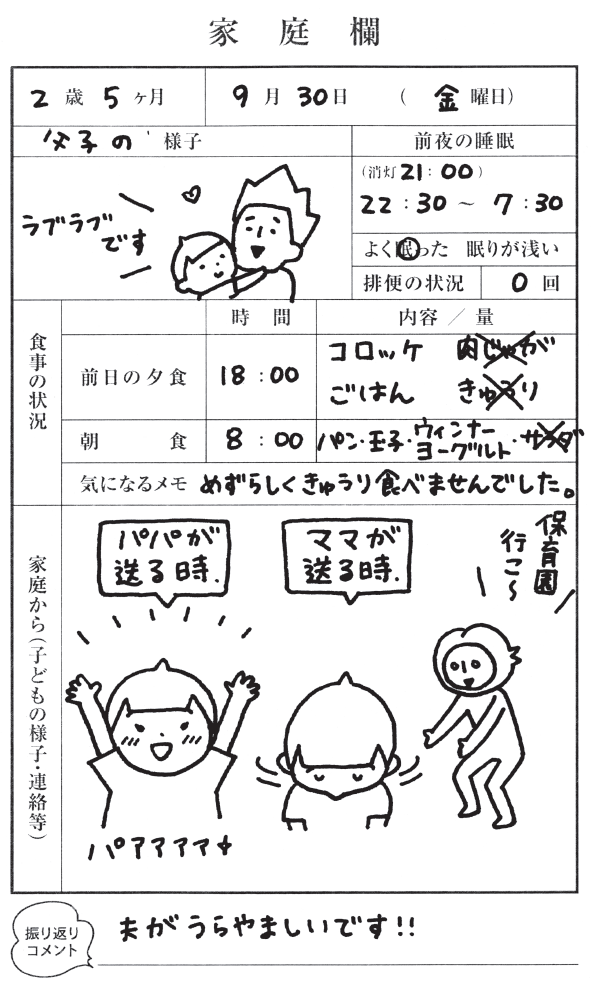 家庭欄
2歳5ヶ月 9月30日 (金曜日)
父子の様子 前夜の睡眠
ラブラブ
です
(消灯21:00)
22:30～7:30
よく眠った 眠りが浅い
排便の状況 0回
食事の状況
時間 内容／量
前日の夕食 18:00 コロッケ 肉じゃが
ごはん きゅうり
朝食 8:00 パン・玉子・ウィンナー
ヨーグルト・サラダ
気になるメモ めずらしくきゅうり食べませんでした。
家庭から(子どもの様子・連絡等)
パパが
送る時.
ママが
送る時.
保育園
行こ～
パアアアア
振り返り
コメント
夫がうらやましいです!!